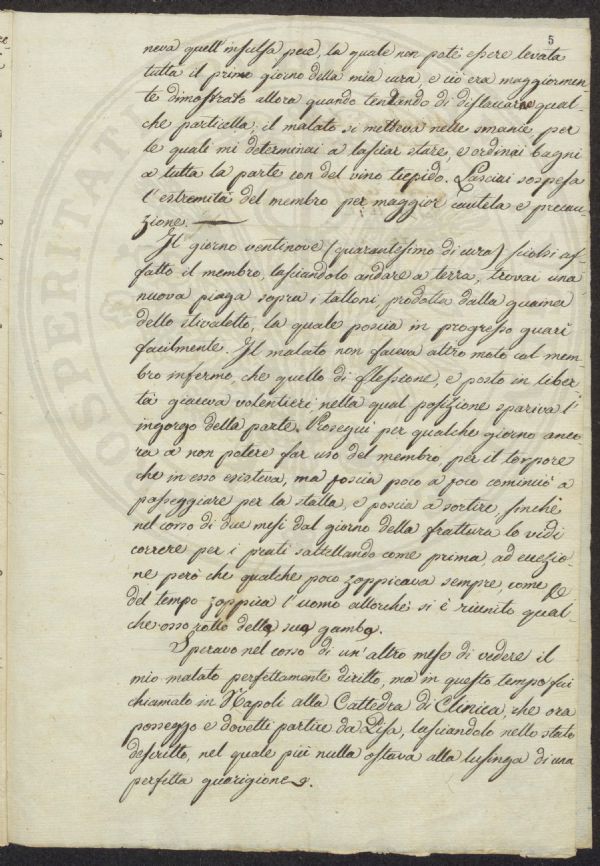 5
neva quell'insulsa pece, la quale non potè essere levata
tutta il primo giorno della mia cura, e ciò era maggiormen-
te dimostrato allora quando tentando di distaccarne qual-
che particella, il malato si metteva nelle smanie per
le quali mi determinai a lasciar stare, e ordinai bagni
a tutta la parte con del vino tiepido. Lasciai sospesa
l'estremità del membro per maggior cautela e precau-
zione.
Il giorno ventinove (quarantesimo di cura) sciolsi af-
fatto il membro, lasciandolo andare a terra, trovai una
nuova piaga sopra i talloni, prodotta dalla guaina
dello stivaletto, la quale poscia in progresso guarì
facilmente. Il malato non faceva altro moto col mem-
bro infermo, che quello di flessione, e posto in liber
tà giaceva volentieri nella qual posizione spariva l'
ingorgo della parte. Prosegui per qualche giorno anco
ra a non potere far uso del membro, per il torpore
che in esso esisteva, ma poscia poco a poco cominciò a
passeggiare per la stalla, e poscia a sortire, sinchè
nel corso di due mesi dal giorno della frattura lo vidi
correre per i prati saltellando come prima, ad eccezio-
ne però che qualche poco zoppicava sempre, come
del tempo zoppica l'uomo allorchè si è riunito qual-
che osso rotto della sua gamba.
Speravo nel corso di un'altro mese di vedere il
mio malato perfettamente diritto, ma in questo tempo fui
chiamato in Napoli alla Cattedra di Clinica, che ora
posseggo e dovetti partire da Pisa, lasciandolo nello stato
descritto, nel quale più nulla ostava alla lusinga di una
perfetta guarigione.